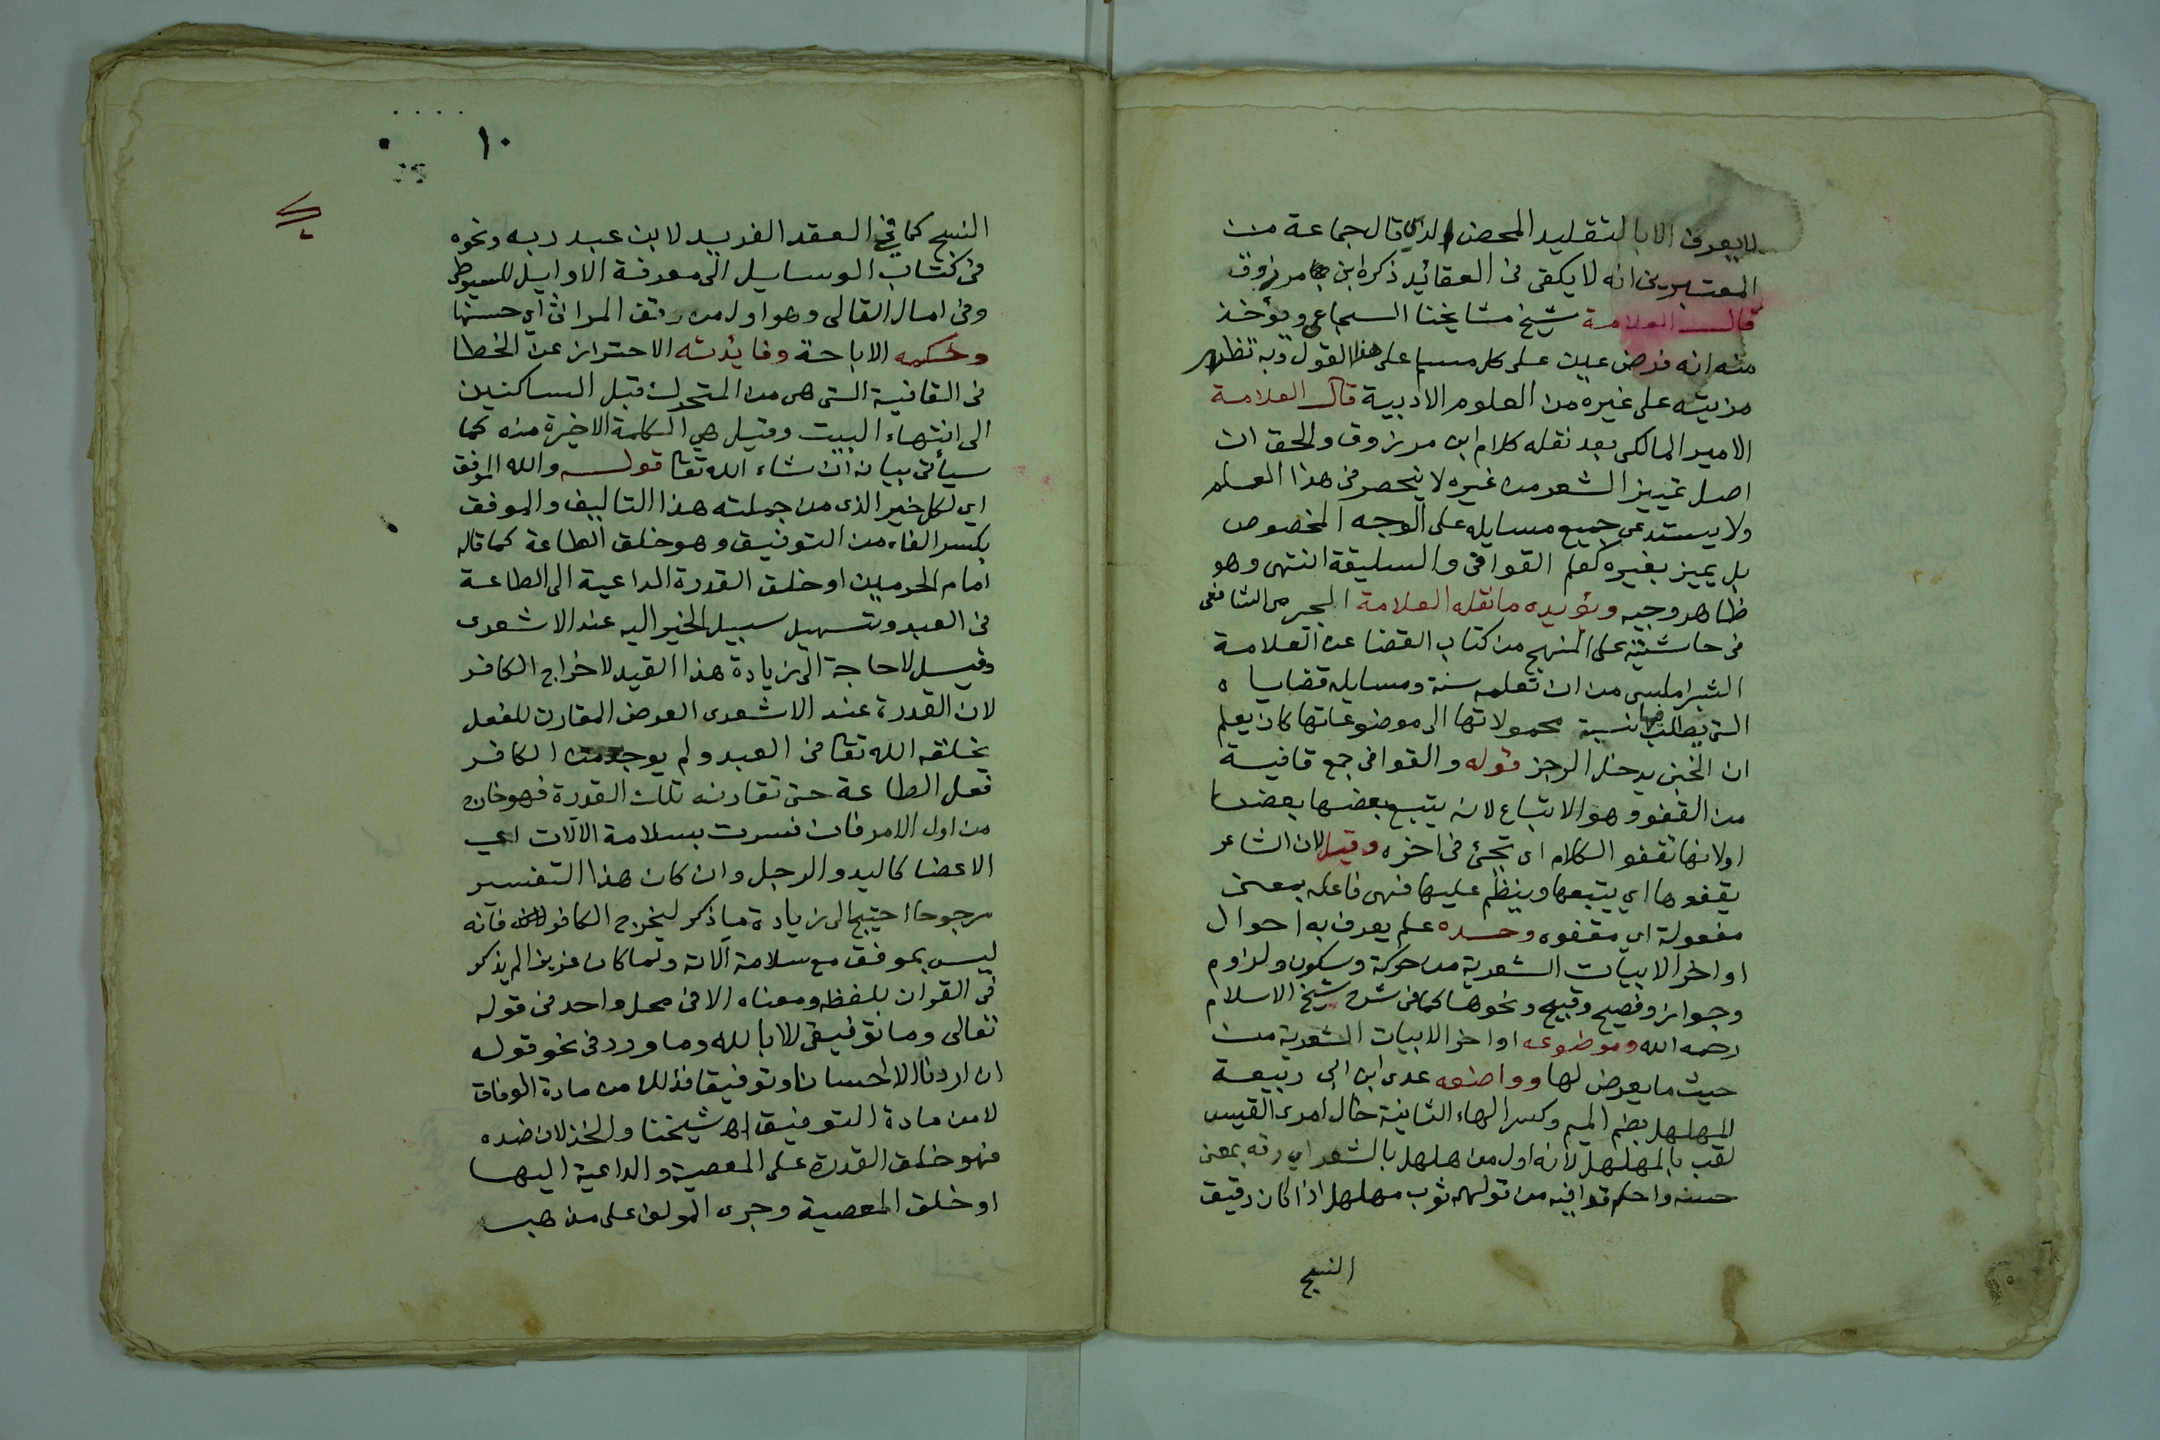 لا يعرف الا بالتقليد المحض الذي قال جماعة من
المعتبرين انه لا يكفى فى العقائد ذكره ابن مرزوق
قال العلامة شيخ مشايخنا السجاعي ويؤخذ
منه انه فرض عين على كل مسلم على هذا القول وبه تظهر
مزيته على غيره من العلوم الادبية قال العلامة
الامير المالكى بعد نقله كلام ابن مرزوق والحق ان
اصل تمييز الشعر من غيره لا ينحصر فى هذا العلم
ولا يستدعى جميع مسايله على الوجه المخصوص
بل يميز بغيره كعلم القوافى والسليقة انتهى وهو
ظاهر وجيه ويؤيده ما نقله العلامة البجيرمى الشافعى
فى حاشيته على المنهج من كتاب القضا عن العلامة
الشبراملسى من ان تعلمه سنة ومسايله قضايا ه
التى يطلب فيها نسبة محمولاتها الى موضوعاتها كان يعلم
ان الخبن يدخل الرجز قوله والقوافى جمع قافية
من القفو وهو الاتباع لانه يتبع بعضها بعضا
او لانها تقفو الكلام اى تجئ فى اخره وقيل لان الشاعر
يقفوها اي يتبعها وينظم عليها فهى فاعلة بمعنى
مفعولة اي مقفوه وحده علم يعرف به احوال
اواخر الابيات الشعرية من حركة وسكون ولزوم
وجواز وفصيح وقبيح ونحوها كما فى شرح شيخ الاسلام
رحمه الله وموضوعه اواخر الابيات الشعرية من
حيث ما يعرض لها وواضعه عدى ابن ابى ربيعة
المهلهل بضم الميم وكسر الهاء الثانية خال امرئ القيس
لقب بالمهلهل لانه اول من هلهل بالشعر اي رقه بمعنى
حسنه واحكم قوافيه من قولهم ثوب مهلهل اذا كان رقيق
النسج
١٠
النسج كما في العقد الفريد لابن عبد ربه ونحوه
فى كتاب الوسايل الى معرفة الاوايل للسيوطى
وفى امال القالى وهو اول من رقق المراثى اي حسنها
وحكمه الاباحة وفايدته الاحتراز عن الخطا
فى القافية التى هى من المتحرك قبل الساكنين
الى انتهاء البيت وقيل هي الكلمة الاخيرة منه كما
سيأتى بيانه ان شاء الله تعا قوله والله الموفق
اي لكل خير الذى من جملته هذا التاليف والموفق
بكسر الفاء من التوفيق وهو خلق الطاعة كما قاله
امام الحرمين او خلق القدرة الداعية الى الطاعة
فى العبد وتسهيل سبيل الخير اليه عند الاشعرى
وقيل لا حاجة الى زيادة هذا القيد لاخراج الكافر
لان القدرة عند الاشعرى العرض المقارن للفعل
يخلقه الله تعا فى العبد ولم يوجد من الكافر
فعل الطاعة حتى تقارنه تلك القدرة فهو خارج
من اول الامر فان فسرت بسلامة الآلات اي
الاعضا كاليد والرجل وان كان هذا التفسير
مرجوحا احتيج الى زيادة ما ذكر ليخرج الكافر فانه
ليس بموفق مع سلامة آلاته ولما كان عزيزا لم يذكر
فى القران بلفظه ومعناه الا فى محل واحد فى قوله
تعالى وما توفيقى الا بالله وما ورد فى نحو قوله
ان اردنا الا احسانا وتوفيقا فذلك من مادة الوفاق
لا من مادة التوفيق اه شيخنا والخذلان ضده
فهو خلق القدرة على المعصية والداعية اليها
او خلق المعصية وجرى المولف على مذهب